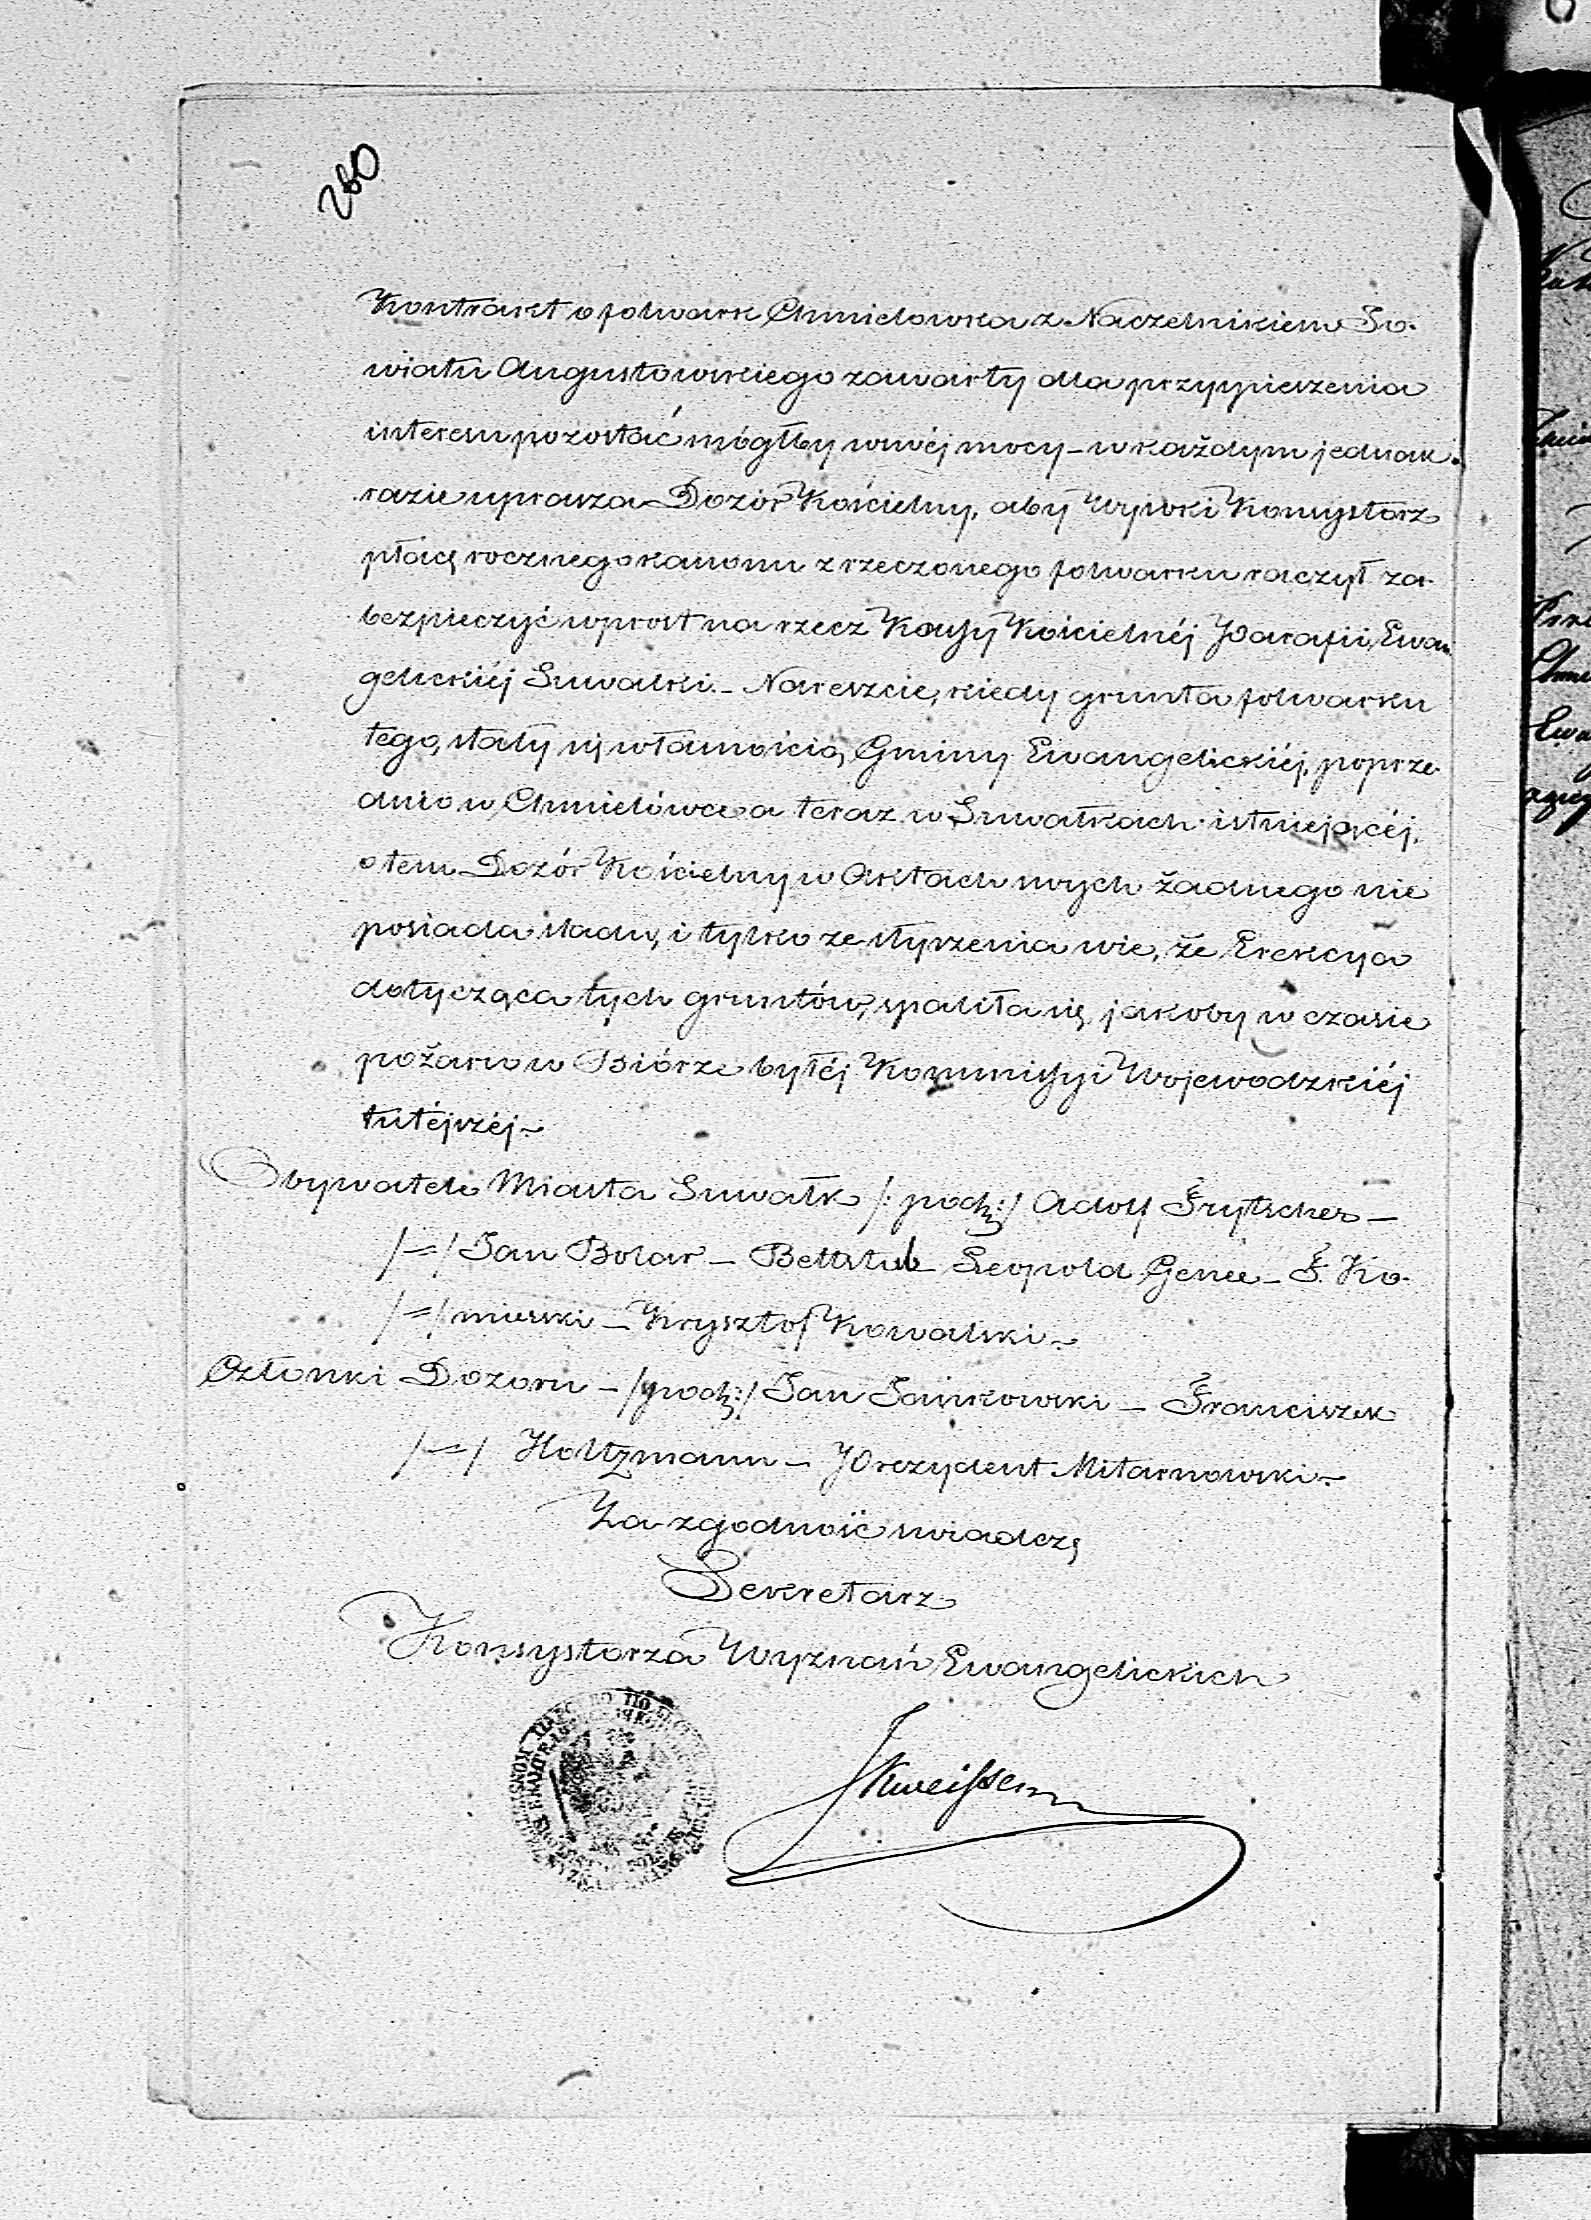 260
Kontrakt o folwark Chmielówka z Naczelnikiem Po-
wiatu Augustowskiego zawarty dla przyspieszenia
interesu pozostać mógłby w swéj mocy – w każdym jednak
razie uprasza Dozór Kościelny, aby Wysoki Konsystorz
płacę rocznego kanonu z rzeczonego folwarku raczył za-
bezpieczyć wprost na rzecz Kassy Kościelnéj Parafii Ewan-
gelickiéj Suwałki. – Nareszcie, kiedy grunta folwarku
tego, stały się własnością Gminy Ewangelickiéj, poprze-
dnio w Chmielówce a teraz w Suwałkach istniejącéj,
o tem Dozór Kościelny w Aktach swych żadnego nie
posiada śladu, i tylko ze słyszenia wie, że Erekcya
dotycząca tych gruntów, spaliła się jakoby w czasie
pożaru w Biórze byłéj Kommissyi Wojewodzkiéj
tutéjszéj. –
Obywatele Miasta Suwałk /: podp :/ Adolf Frytscher –
/=/ Jan Bolar – Bettstub Leopold Genee – F. Ko-
/=/ mierski – Krysztof Kowalski –
Członki Dozoru – /podp:/ Jan Jankowski – Franciszek
/=/ Holtzmann – Prezydent Milarnowski –
Za zgodność świadczę
Sekretarz
Konsystorza Wyznań Ewangelickich